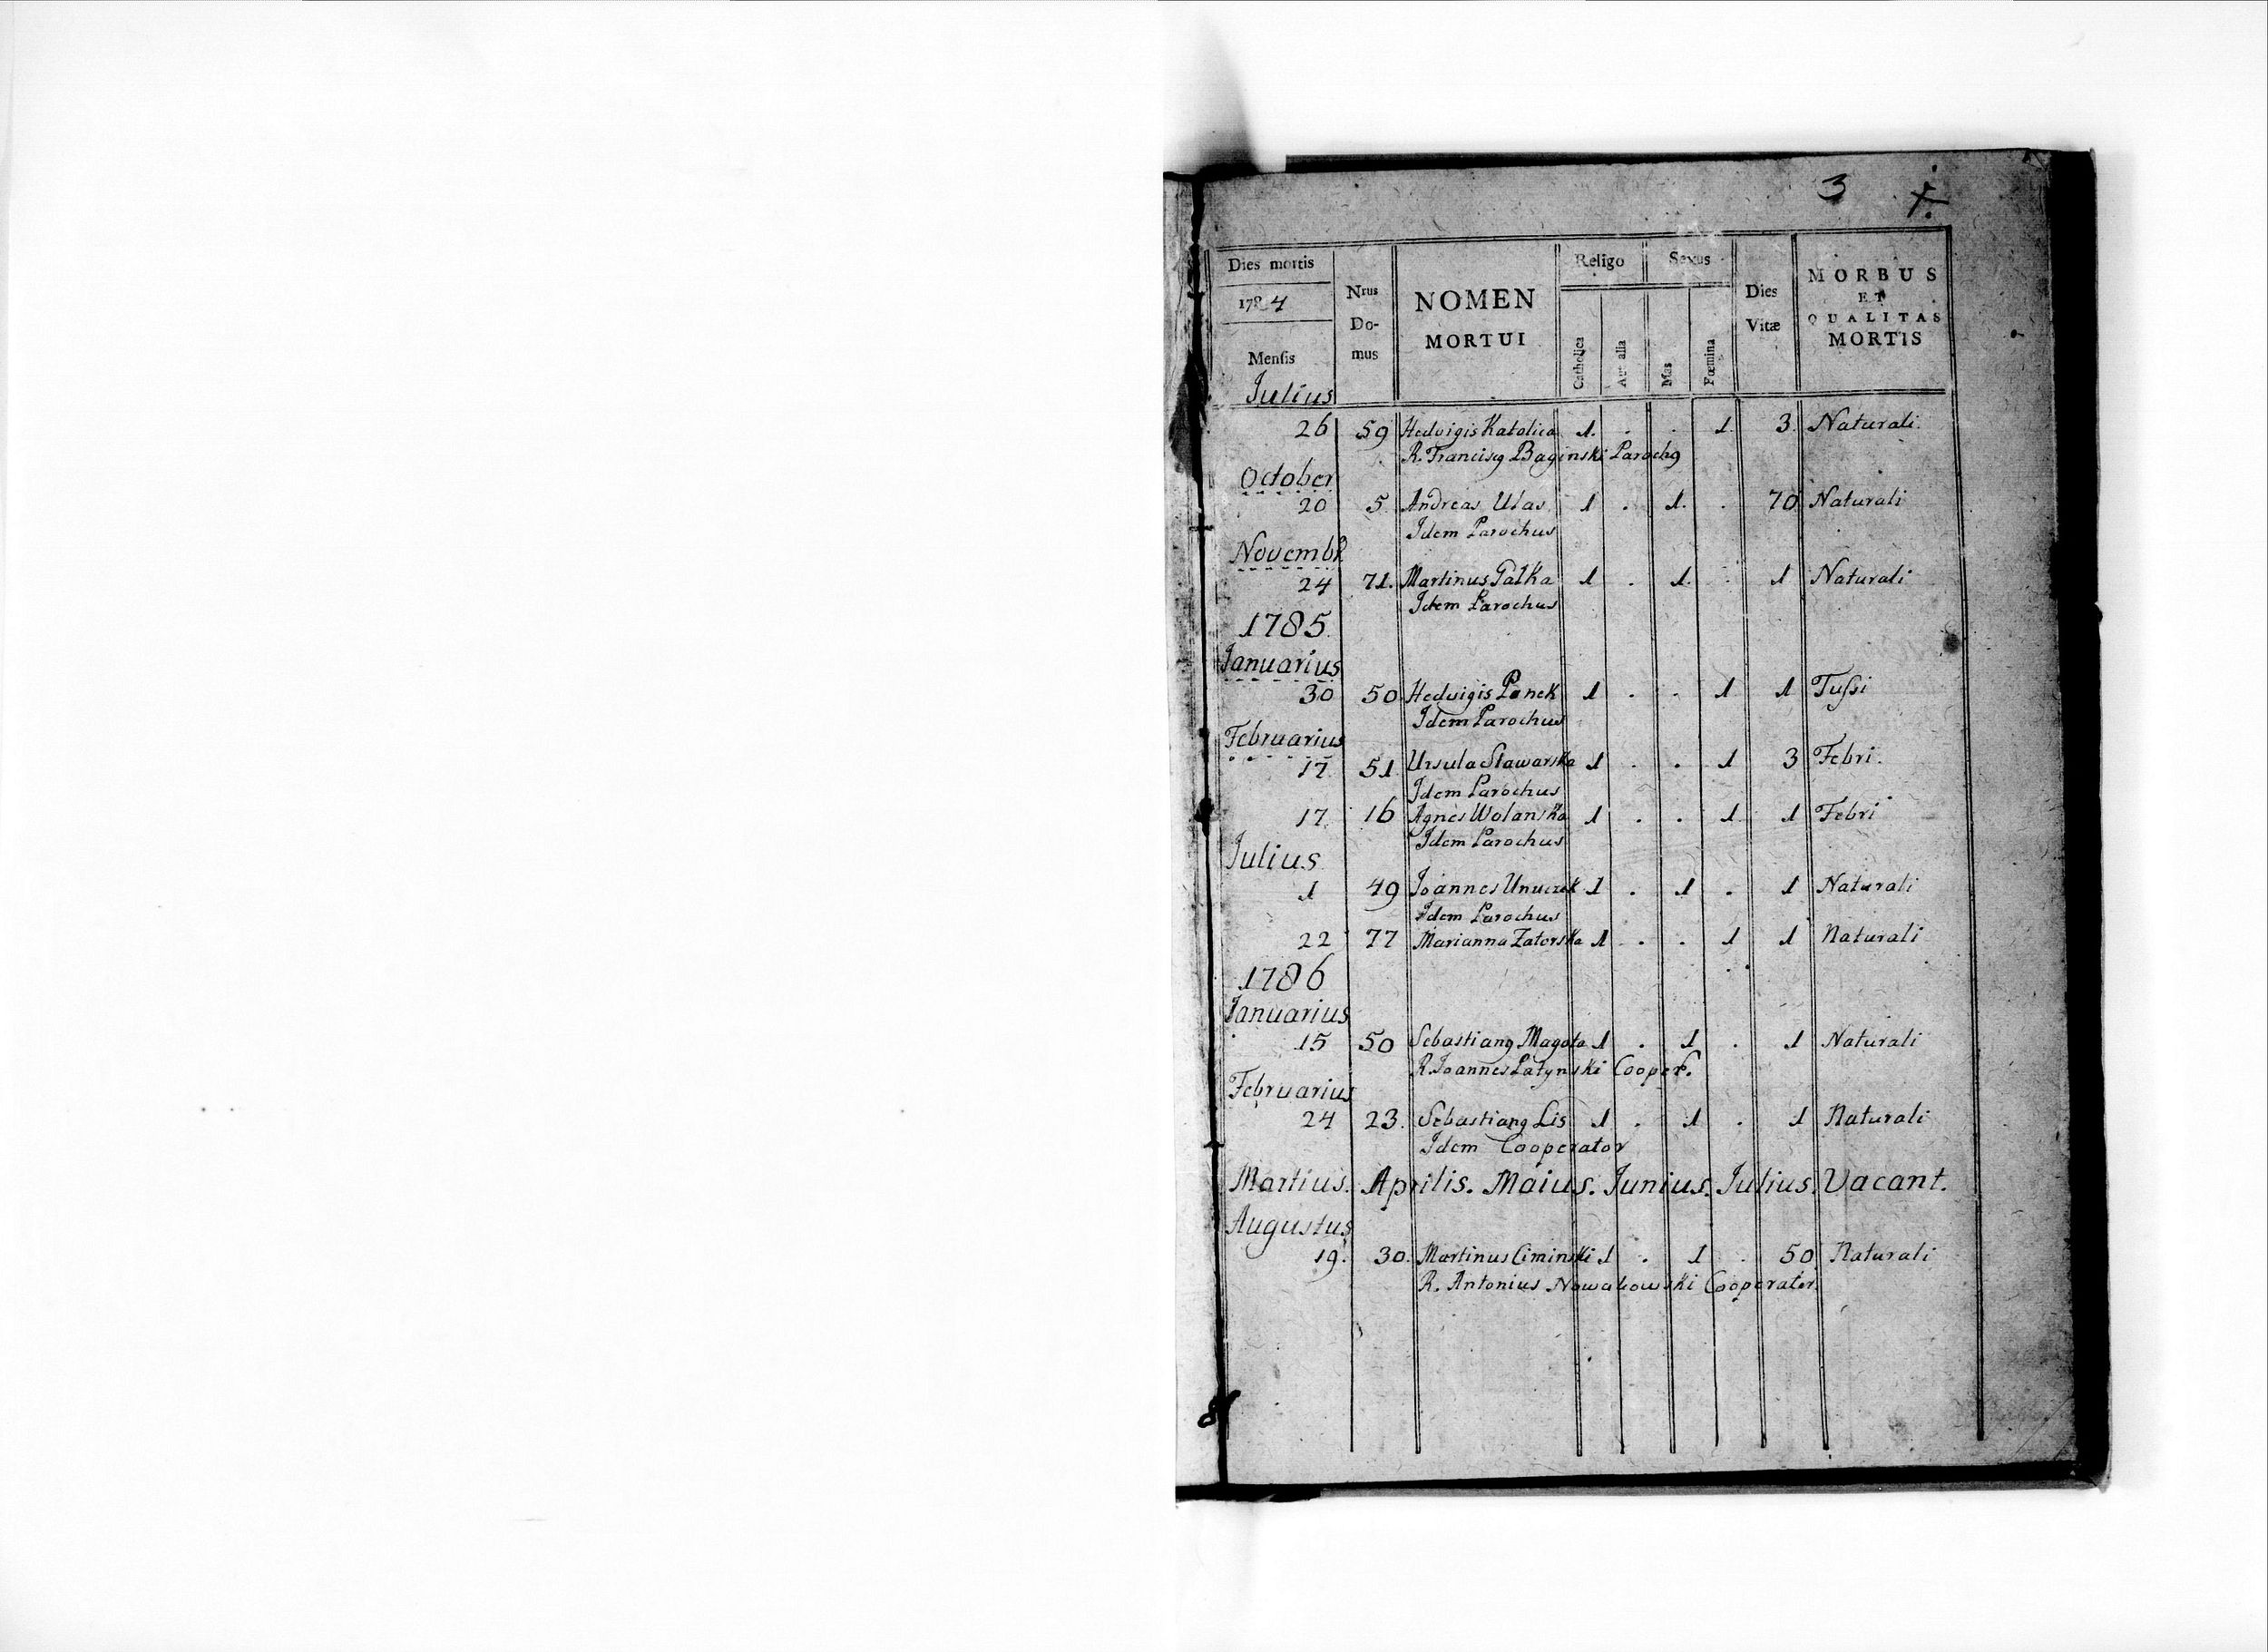 3
Dies mortis Nrus Do-mus NOMEN MORTUI Religo Sexus Dies Vitæ MORBUS ET QUALITAS MORTIS
1784
Mensis Catholica Aut alia Mas Fœmina
Julius
26 59 Hedvigis Katolica 1. . . 1. 3. Naturali.
R. Francisꝰ Baginski Parochꝰ
October
20 5. Andreas Ulas 1 . 1. . 70 Naturali
Idem Parochus
Novembr
24 71. Martinus Galka 1 . 1. . 1 Naturali
Idem Parochus
1785.
Januarius
30 50 Hedvigis Panek 1 . . 1 1 Tuſsi
Idem Parochus
Februarius
17 51. Ursula Stawarska 1 . . 1 3 Febri.
Idem Parochus
17. 16 Agnes Wolanska 1 . . 1. 1 Febri
Idem Parochus
Julius
1 49 Joannes 1 . 1 . 1 Naturali
Idem Parochus
22 77 Marianna Zatorska 1 . . 1 1 Naturali
1786
Januarius
15 50 Sebastianꝰ Magota 1 . 1 . 1 Naturali
R. Joannes Latynski Cooper.
Februarius
24 23. Sebastianꝰ Lis 1 . 1 . 1 Naturali
Idem Cooperator
Martius. Aprilis. Maius. Junius. Julius. Vacant.
Augustus
19. 30. Martinus Ciminski 1 . 1 . 50 Naturali
R. Antonius Nowakowski Cooperator.